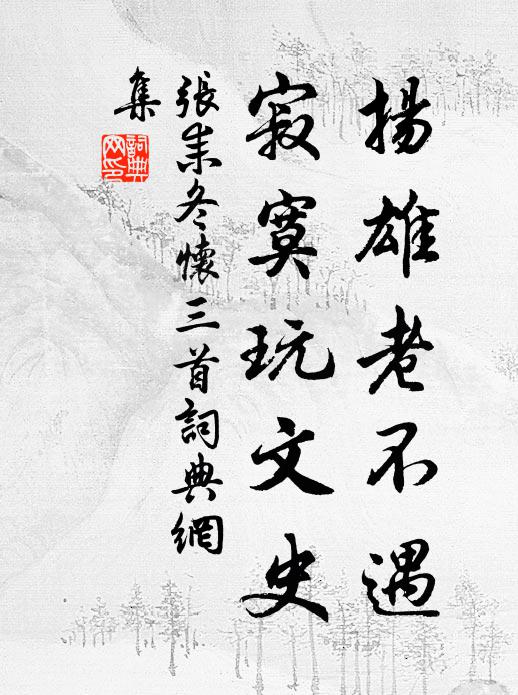 揚雄老不遇
寂寞玩文史
張耒冬懷三首詞典網
集
詞典
网印